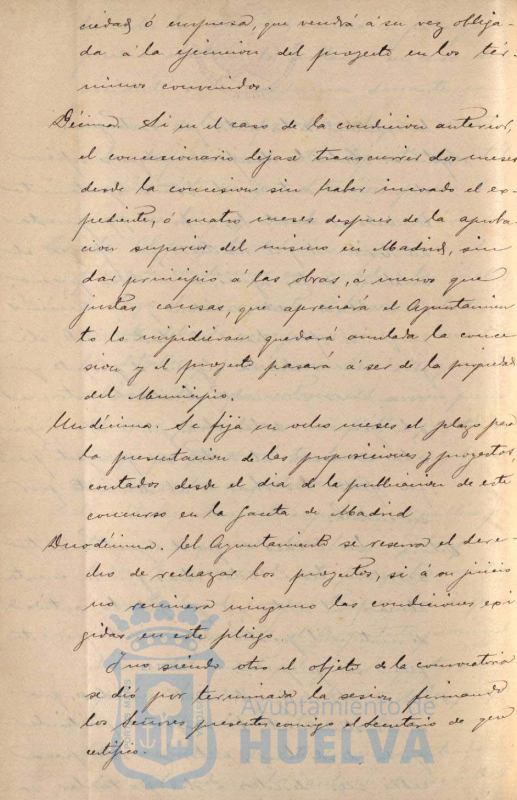 ciedad, ó empresa, que vendrá á su vez obliga-
da á la ejecucion del proyecto en los tér-
minos convenidos.
Décima. Si en el caso de la condicion anterior,
el concesionario dejase transcurrir dos meses
desde la concesion sin haber incoado el ex-
pediente, ó cuatro meses despues de la aproba-
cion superior del mismo en Madrid, sin
dar principio á las obras, á menos que
justas causas, que apreciará el Ayuntamien
to lo impidieran quedará anulada la conce
sion y el proyecto pasará á ser de la propiedad
del Municipio.
Undécima. Se fija en ocho meses el plazo para
la presentacion de las proposiciones y proyectos,
contados desde el dia de la publicacion de este
concurso en la Gaceta de Madrid
Duodécima. El Ayuntamiento se reserva el dere-
cho de rechazar los proyectos, si á su juicio
no reuniera ninguno las condiciones exi
gidas en este pliego.
Y no siendo otro el objeto de la convocatoria
se dió por terminada la sesion, firmando
los Señores presentes conmigo el Secretario de que
certifico.
Ayuntamiento de
HUELVA